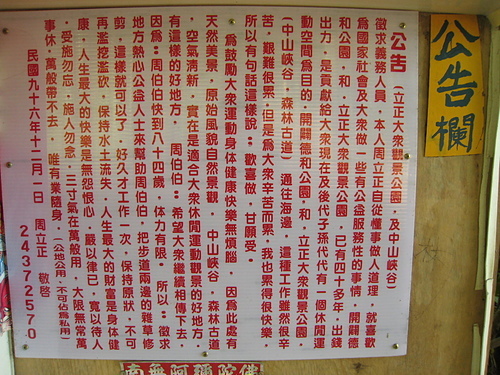 公告欄
公告 (立正大衆觀景公園,及中山峽谷)
徵求義務人員,本人周立正自從懂事做人道理,就喜歡
為國家社會及大衆做一些有公益服務性的事情,開闢德
和公園,和,立正大衆觀景公園,已有四十多年,出錢
出力,是貢獻給大衆現在及後代子孫代代有一個休閒運
動空間為目的,開闢德和公園,和,立正大衆觀景公園,
(中山峽谷,森林古道)通往海邊,這種工作雖然很辛
苦,艱難很累,但是為大衆辛苦而累,我也累得很快樂,
所以有句話這樣說:歡喜做,甘願受。
為鼓勵大衆運動身体健康快樂無煩腦,因為此處有
天然美景,原始風貌自然景觀,中山峽谷,森林古道
,空氣清新,實在是適合大衆休閒運動觀景的好地方,
有這樣的好地方,周伯伯:希望大衆繼續相傳下去,
因為:周伯伯快到八十四歲,体力有限,所以:徵求
地方熱心公益人士來幫助周伯伯,把步道兩邊的雜草修
剪,這樣就可以了,好久才工作一次,保持原狀,不可
再濫挖濫砍,保持水土流失,人生最大的財富是身体健
康,人生最大的快樂是無怨恨心,嚴以律已,寬以待人
,受施勿忘,施人勿忘,三寸氣在萬般用,大限無常萬
事休,萬般帶不去,唯有業隨身,(公地公用,不可佔為私用)
民國九十六年十二月一日 周立正 敬啓
24372570
南無阿彌陀佛